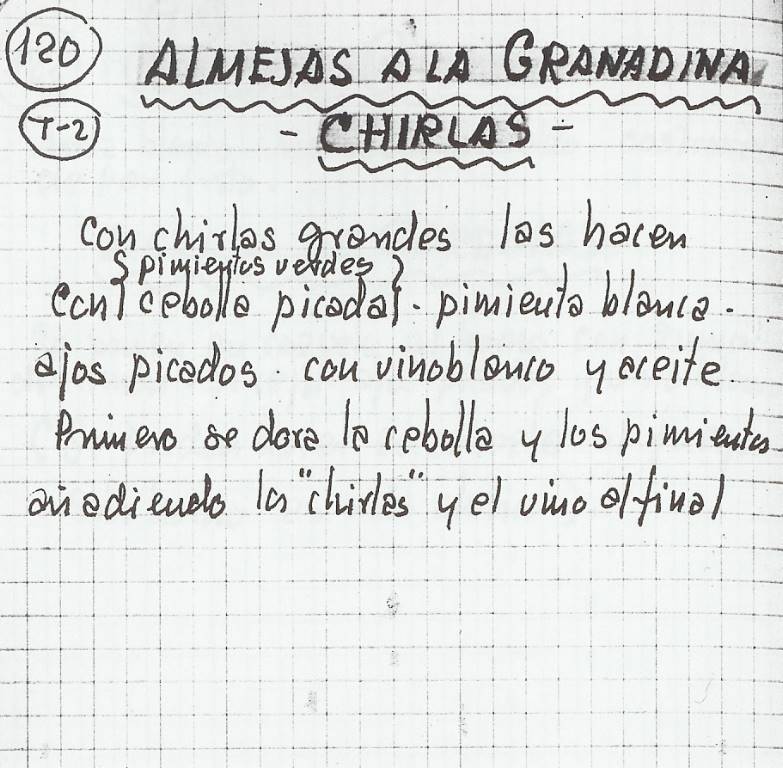 120
ALMEJAS A LA GRANADINA.
T-2
- CHIRLAS -
Con chirlas grandes las hacen
{ pimientos verdes }
con { cebolla picada } . pimienta blanca .
ajos picados . con vino blanco y aceite .
Primero se dora la cebolla y los pimientos
añadiendo las "chirlas" y el vino al final